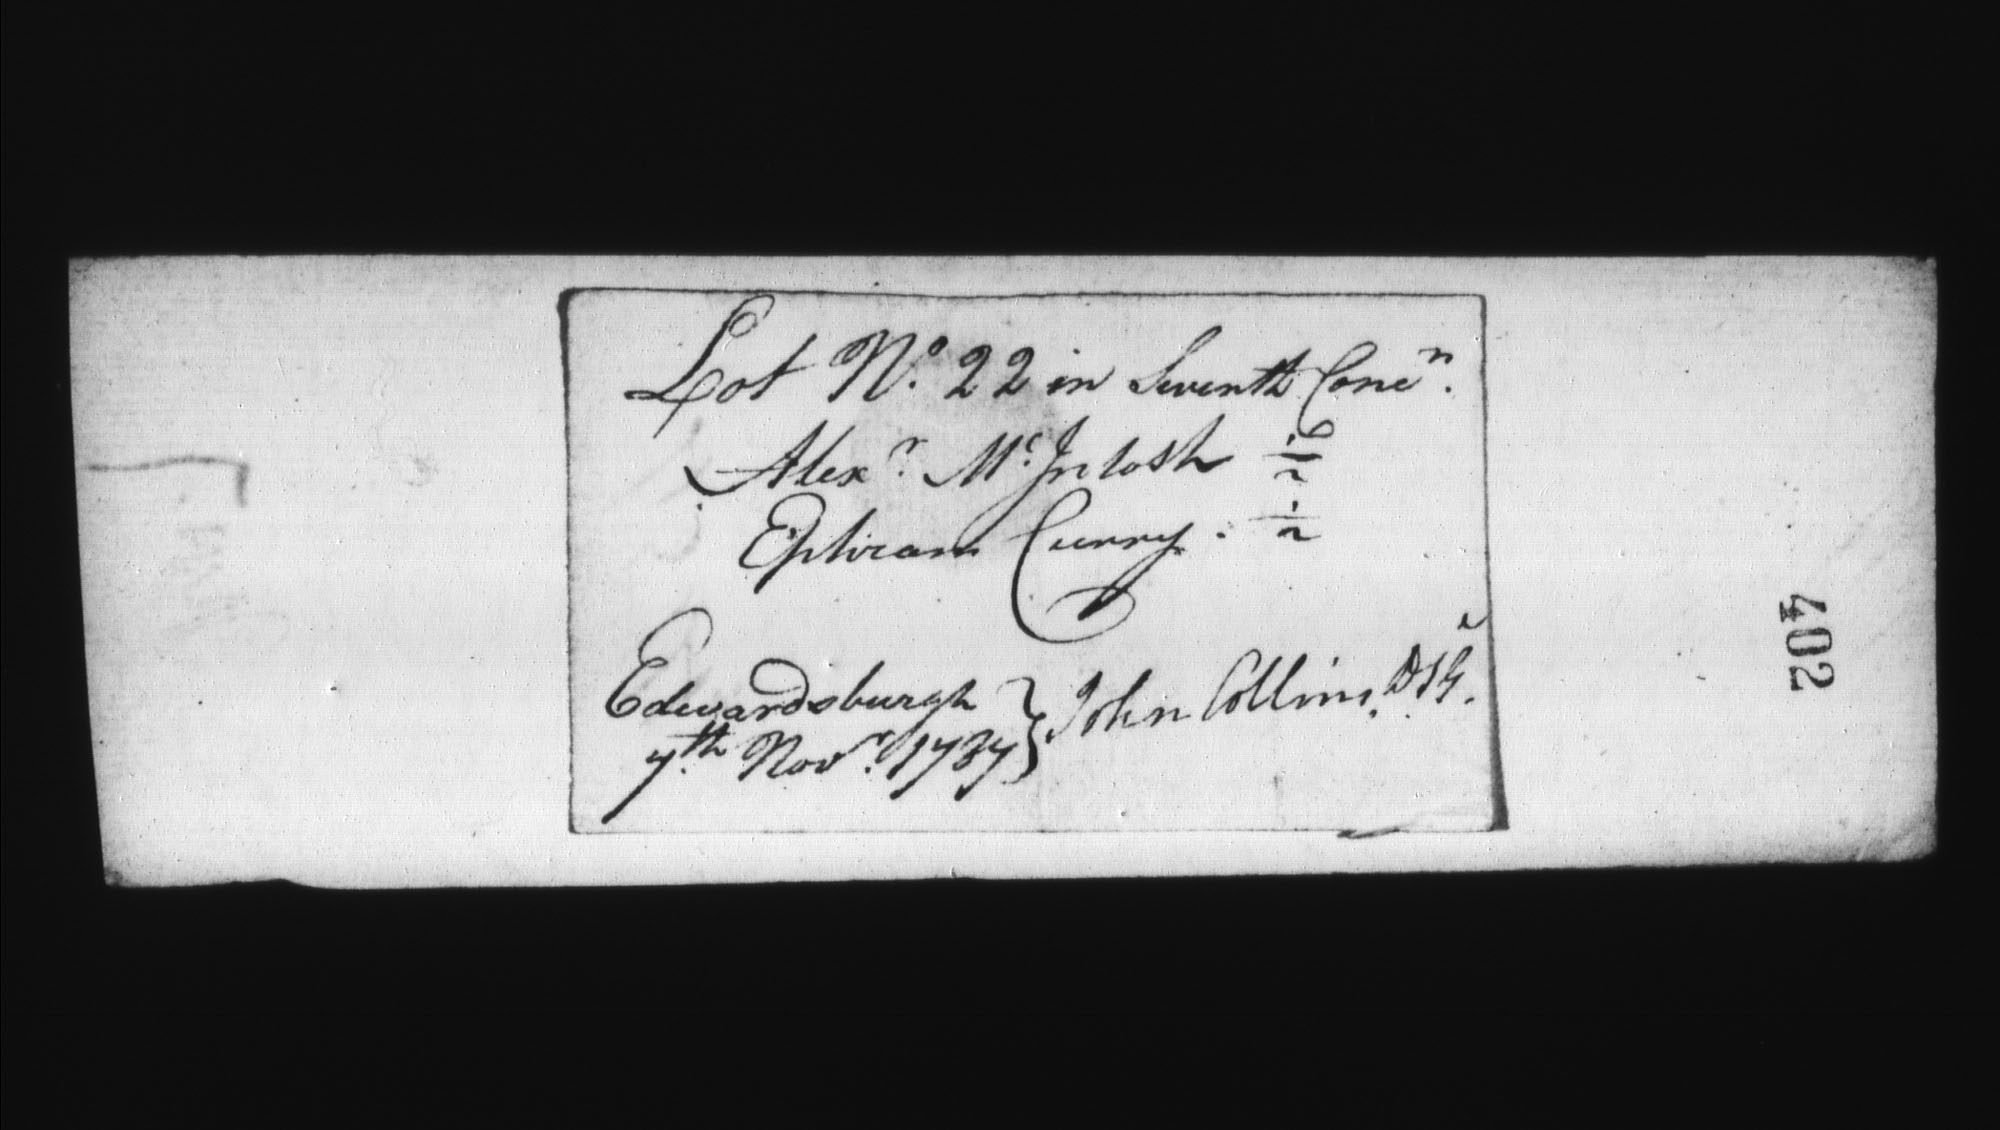 Lot Nº. 22 in Seventh Concn.
Alexr. McIntosh ½
Ephram Curry. ½
Edwardsburgh } John Collins, D S G.
7th Novr. 1787
402